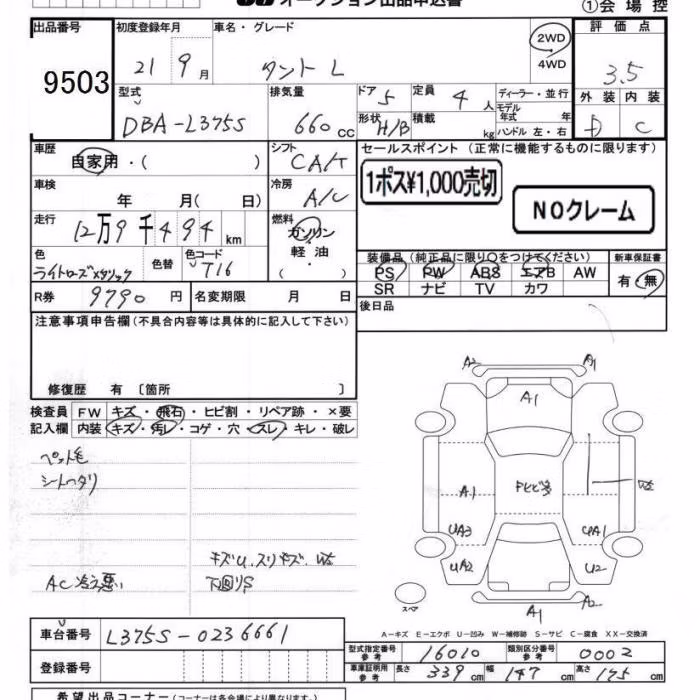 オークション出品申込書
①会場控
出品番号 9503
初度登録年月 21 9月
車名・グレード タント L
2WD
4WD
評価点 3.5
外装 内装
D C
型式 DBA-L375S
排気量 660 cc
ドア 5
定員 4 人
形状 H/B
積載 kg
ディーラー・並行
モデル年式 年
ハンドル 左・右
車歴 自家用・( )
シフト CA/T
セールスポイント (正常に機能するものに限ります)
1ポス¥1,000売切
NOクレーム
車検 年 月( 日)
冷房 A/C
走行 12万9千494 km
燃料 ガソリン 軽油 ( )
色 ライトローズメタリック
色替
色コード T16
装備品(純正品に限り○をつけてください)
PS PW ABS エアB AW
SR ナビ TV カワ
新車保証書
有・無
R券 9790 円
名変期限 月 日
後日品
注意事項申告欄(不具合内容等は具体的に記入して下さい)
修復歴 有 〔箇所 〕
検査員記入欄
FW キズ・飛石・ヒビ割・リペア跡・×要
内装 キズ・汚レ・コゲ・穴・スレ・キレ・破レ
ペット毛
シートヘタリ
キズU.スリキズ.
AC冷え悪い
下回りS
A2 A1
A1
A1
UA3 UA1
UA2 U2
A1 A2
スペア
A-キズ E-エクボ U-凹み W-補修跡 S-サビ C-腐食 XX-交換済
車台番号 L375S-0236661
型式指定番号 参考 16010
類別区分番号 参考 0002
登録番号
車庫証明用 参考 長さ 339 cm 幅 147 cm 高さ 175 cm
希望出品コーナー(コーナーは各会場により異なります)